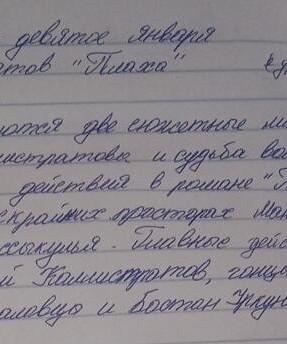 девятое января
атов "Плаха"
ются две сюжетные ли
мистратовы и судьба вол
действия в романе "П
скрайних просторах Мою
ссыкулья. Главные дейс
й Каллистратов, гонцы
аловцо и бостан Уркун